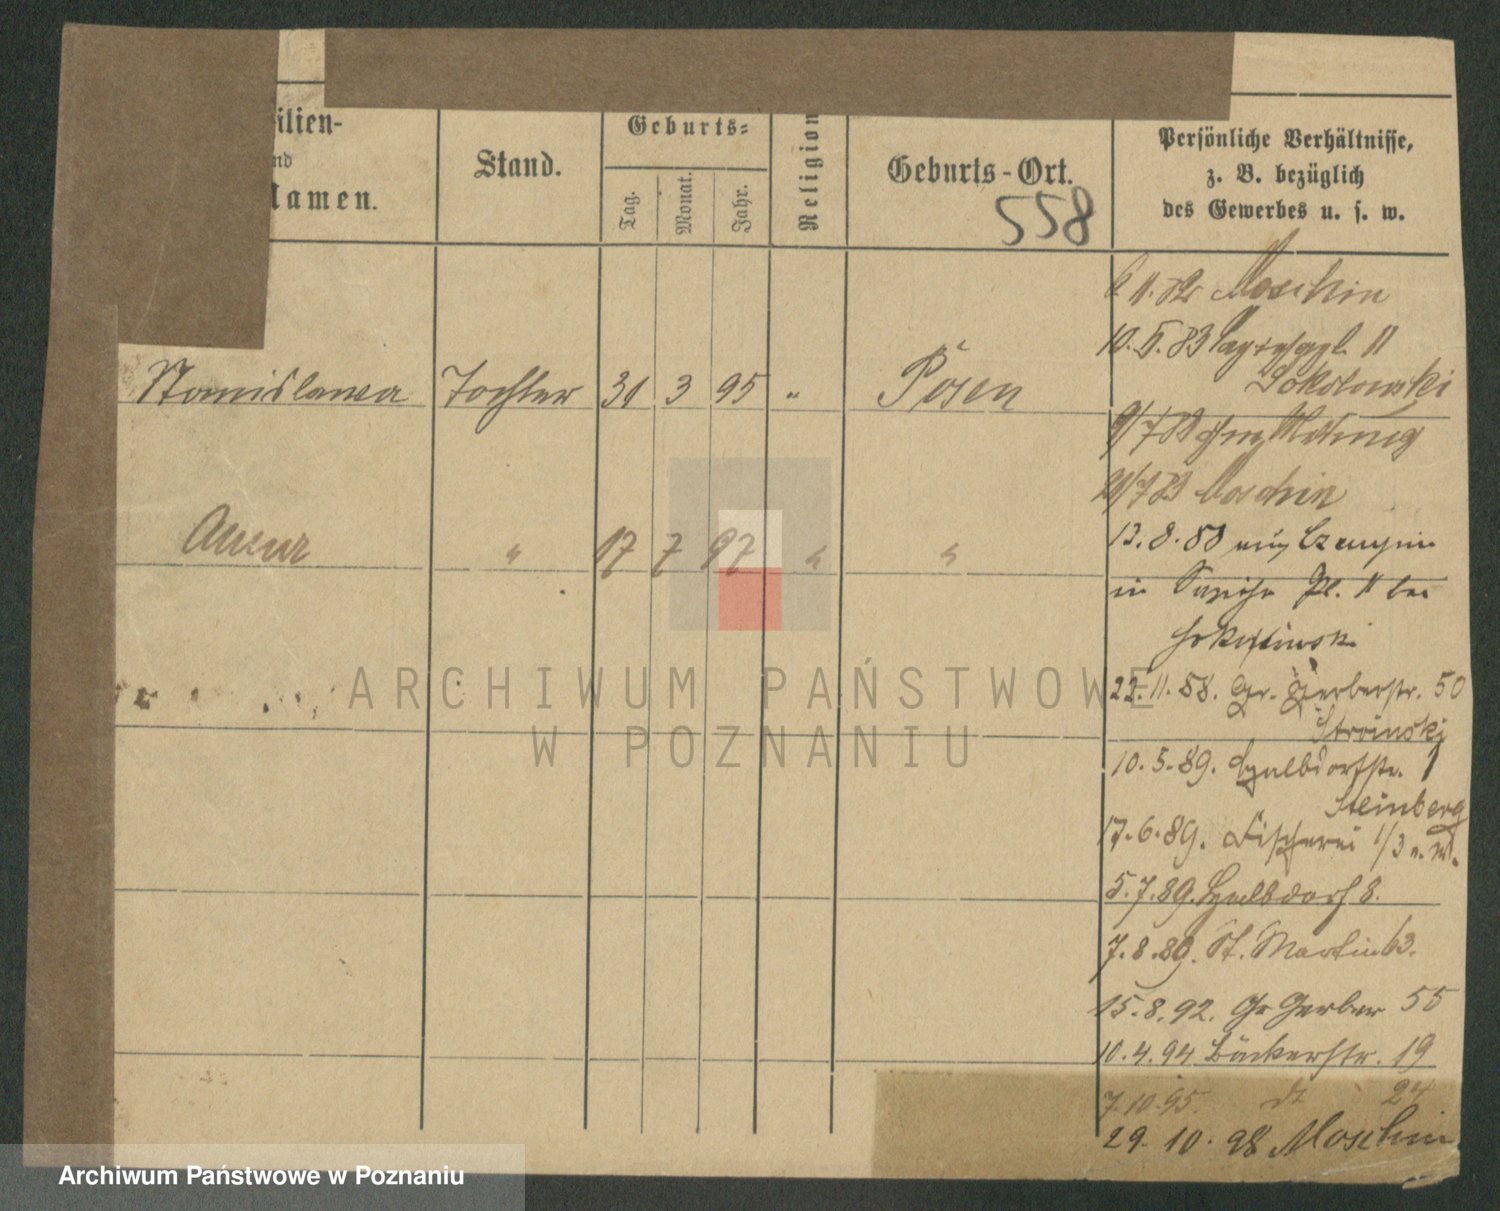 ilien-
nd
Namen.
Stand.
Geburts-
Tag.
Monat.
Jahr.
Religion
Geburts-Ort.
558
Persönliche Verhältnisse,
z. B. bezüglich
des Gewerbes u. s. w.
Stanislawa Tochter 31 3 95 " Posen
" 17 7 97 " "
6 11. 82 Moschin
10. 5. 83 11
Sokolowski
9/7 83
21/7 83 Moschin
13. 8. 88 Czempin
in Pl. 11 bei
22. 11. 88. Gr. Gerberstr. 50
Stroinski
10. 5. 89. Halbdorfstr. 1
Steinberg
17. 6. 89. Fischerei 1/3
5. 7. 89. Halbdorf 8.
7. 8. 89. St. Martin 63.
15. 8. 92. Gr Gerber 55
10. 4. 94 Bäckerstr. 19
7. 10. 95. dt 24
29. 10. 98 Moschin
ARCHIWUM PAŃSTWOWE
W POZNANIU
Archiwum Państwowe w Poznaniu